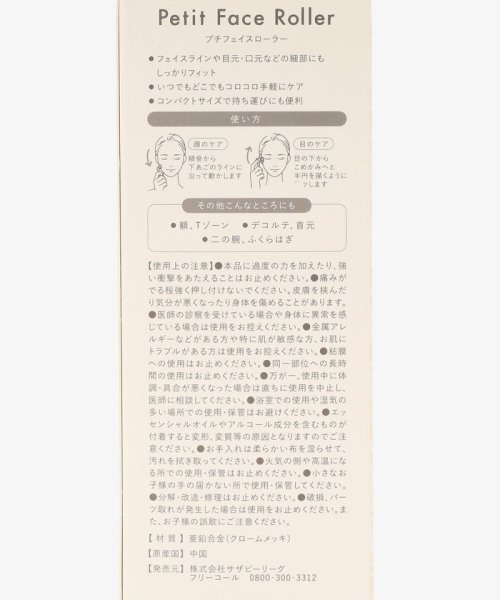 Petit Face Roller
プチフェイスローラー
●フェイスラインや目元・口元などの細部にも
しっかりフィット
●いつでもどこでもコロコロ手軽にケア
●コンパクトサイズで持ち運びにも便利
使い方
顔のケア
頬骨から
下あごのラインに
沿って動かします
目のケア
目の下から
こめかみへと
半円を描くように
します
その他こんなところにも
●額、Tゾーン ●デコルテ、首元
●二の腕、ふくらはぎ
【使用上の注意】●本品に過度の力を加えたり、強
い衝撃をあたえることはお止めください。●痛みが
でる程強く押し付けないでください。皮膚を挟んだ
り気分が悪くなったり身体を傷めることがあります。
●医師の診察を受けている場合や身体に異常を感
じている場合は使用をお控えください。●金属アレ
ルギーなどがある方や特に肌が敏感な方、お肌に
トラブルがある方は使用をお控えください。●粘膜
への使用はお止めください。●同一部位への長時
間の使用はお止めください。●万が一、使用中に体
調・具合が悪くなった場合は直ちに使用を中止し、
医師に相談してください。●浴室での使用や湿気の
多い場所での使用・保管はお避けください。●エッ
センシャルオイルやアルコール成分を含むものが
付着すると変形、変質等の原因となりますのでご注
意ください。●お手入れは柔らかい布を湿らせて、
汚れを拭き取ってください。●火気の側や高温にな
る所での使用・保管はお止めください。●小さなお
子様の手の届かない所で使用・保管してください。
●分解・改造・修理はお止めください。●破損、パー
ツ取れが発生した場合は使用をお止めください。ま
た、お子様の誤飲にご注意ください。
【材質】亜鉛合金(クロームメッキ)
【原産国】中国
【発売元】株式会社サザビーリーグ
フリーコール 0800-300-3312